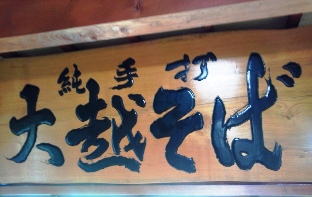 純手打
大越そば